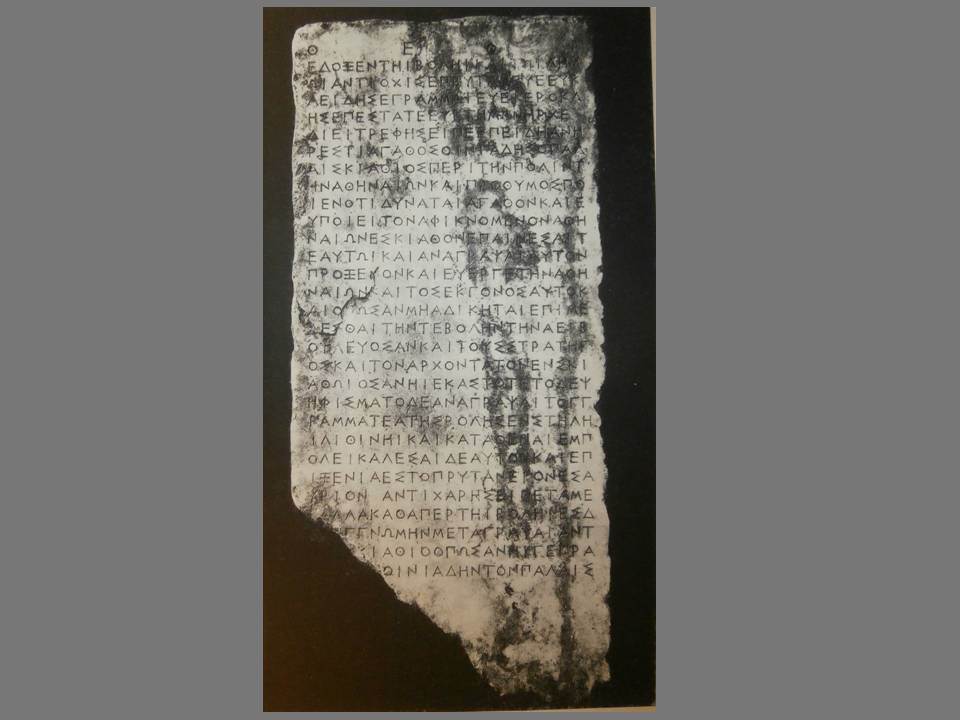 Θ Ε Ο Ι
ΕΔΟΞΕΝΤΗΙΒΟΛΗΙΚΑΙΤΩΙΔΗΜ
ΩΙΑΝΤΙΟΧΙΣΕΠΡΥΤΑΝΕΥΕΕΥΚ
ΛΕΙΔΗΣΕΓΡΑΜΜΑΤΕΥΕΙΕΡΟΚΛ
ΗΣΕΠΕΣΤΑΤΕΕΥΚΤΗΜΩΝΗΡΧΕ
ΔΙΕΙΤΡΕΦΗΣΕΙΠΕΕΠΕΙΔΗΑΝΗ
ΡΕΣΤΙΑΓΑΘΟΣΟΙΝΙΑΔΗΣΟΠΑΛ
ΑΙΣΚΙΑΘΙΟΣΠΕΡΙΤΗΝΠΟΛΙΝΤ
ΗΝΑΘΗΝΑΙΩΝΚΑΙΠΡΟΘΥΜΟΣΠΟ
ΙΕΝΟΤΙΔΥΝΑΤΑΙΑΓΑΘΟΝΚΑΙΕ
ΥΠΟΙΕΙΤΟΝΑΦΙΚΝΟΜΕΝΟΝΑΘΗ
ΝΑΙΩΝΕΣΚΙΑΘΟΝΕΠΑΙΝΕΣΑΙΤ
ΕΑΥΤΩΙΚΑΙΑΝΑΓΡΑΨΑΙΑΥΤΟΝ
ΠΡΟΞΕΝΟΝΚΑΙΕΥΕΡΓΕΤΗΝΑΘΗ
ΝΑΙΩΝΚΑΙΤΟΣΕΚΓΟΝΟΣΑΥΤΟΚ
ΑΙΟΠΩΣΑΝΜΗΑΔΙΚΗΤΑΙΕΠΙΜΕ
ΛΕΣΘΑΙΤΗΝΤΕΒΟΛΗΝΤΗΝΑΕΙΒ
ΟΥΛΕΥΟΣΑΝΚΑΙΤΟΥΣΣΤΡΑΤΗΓ
ΟΣΚΑΙΤΟΝΑΡΧΟΝΤΑΤΟΝΕΝΣΚΙ
ΑΘΩΙΟΣΑΝΗΙΕΚΑΣΤΟΤΕΤΟΔΕΨ
ΗΦΙΣΜΑΤΟΔΕΑΝΑΓΡΑΨΑΙΤΟΓΓ
ΡΑΜΜΑΤΕΑΤΗΣΒΟΛΗΣΕΝΣΤΗΛΗ
ΙΛΙΘΙΝΗΙΚΑΙΚΑΤΑΘΕΝΑΙΕΜΠ
ΟΛΕΙΚΑΛΕΣΑΙΔΕΑΥΤΟΝΚΑΙΕΠ
ΙΞΕΝΙΑΕΣΤΟΠΡΥΤΑΝΕΙΟΝΕΣΑ
ΥΡΙΟΝ ΑΝΤΙΧΑΡΗΣΕΙΠΕΤΑΜΕ
ΑΛΛΑΚΑΘΑΠΕΡΤΗΙΒΟΛΗΙΕΣΔ
ΓΝΩΜΗΝΜΕΤΑΓΡΑΨΑΙΑΝΤ
ΙΑΘΙΟΟΠΩΣΑΝΗΙΓΕΓΡΑ
ΟΙΝΙΑΔΗΝΤΟΝΠΑΛΑΙΣ